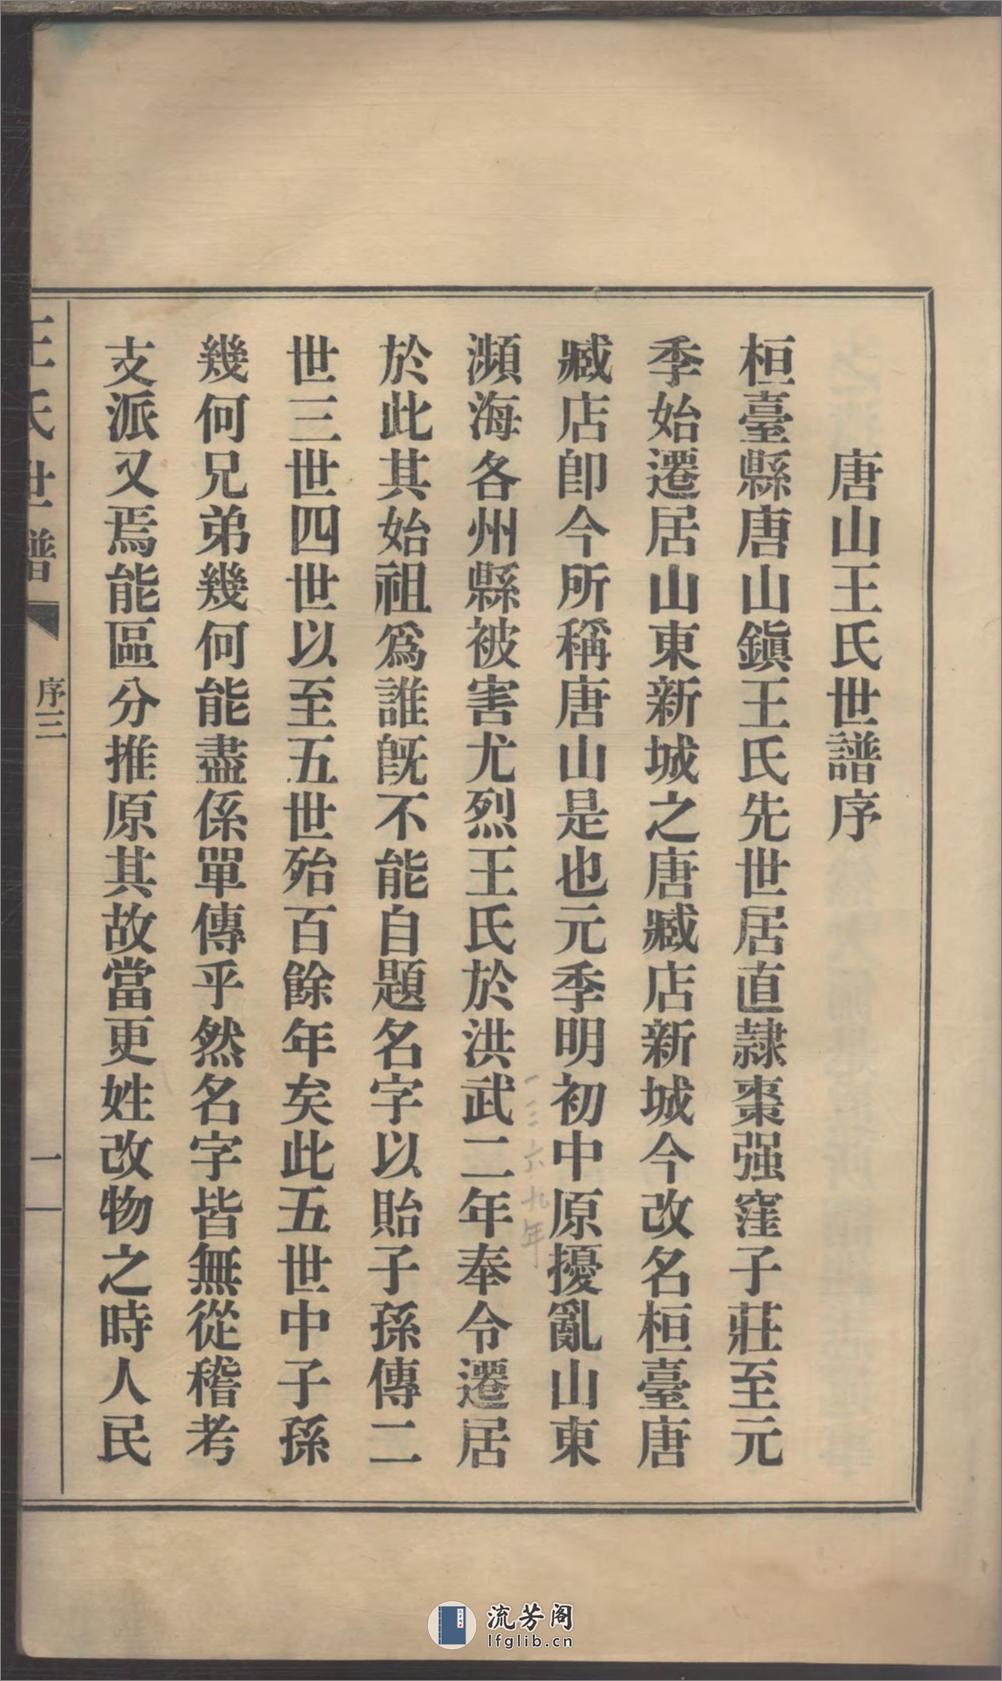 唐山王氏世譜序
桓臺縣唐山鎭王氏先世居直隷棗强窪子莊至元
季始遷居山東新城之唐臧店新城今改名桓臺唐
臧店卽今所稱唐山是也元季明初中原擾亂山東
一三六九年
瀕海各州縣被害尤烈王氏於洪武二年奉令遷居
於此其始祖爲誰旣不能自題名字以貽子孫傳二
世三世四世以至五世殆百餘年矣此五世中子孫
幾何兄弟幾何能盡係單傳乎然名字皆無從稽考
支派又焉能區分推原其故當更姓改物之時人民
王氏世譜
序三
一
流芳阁
lfglib.cn